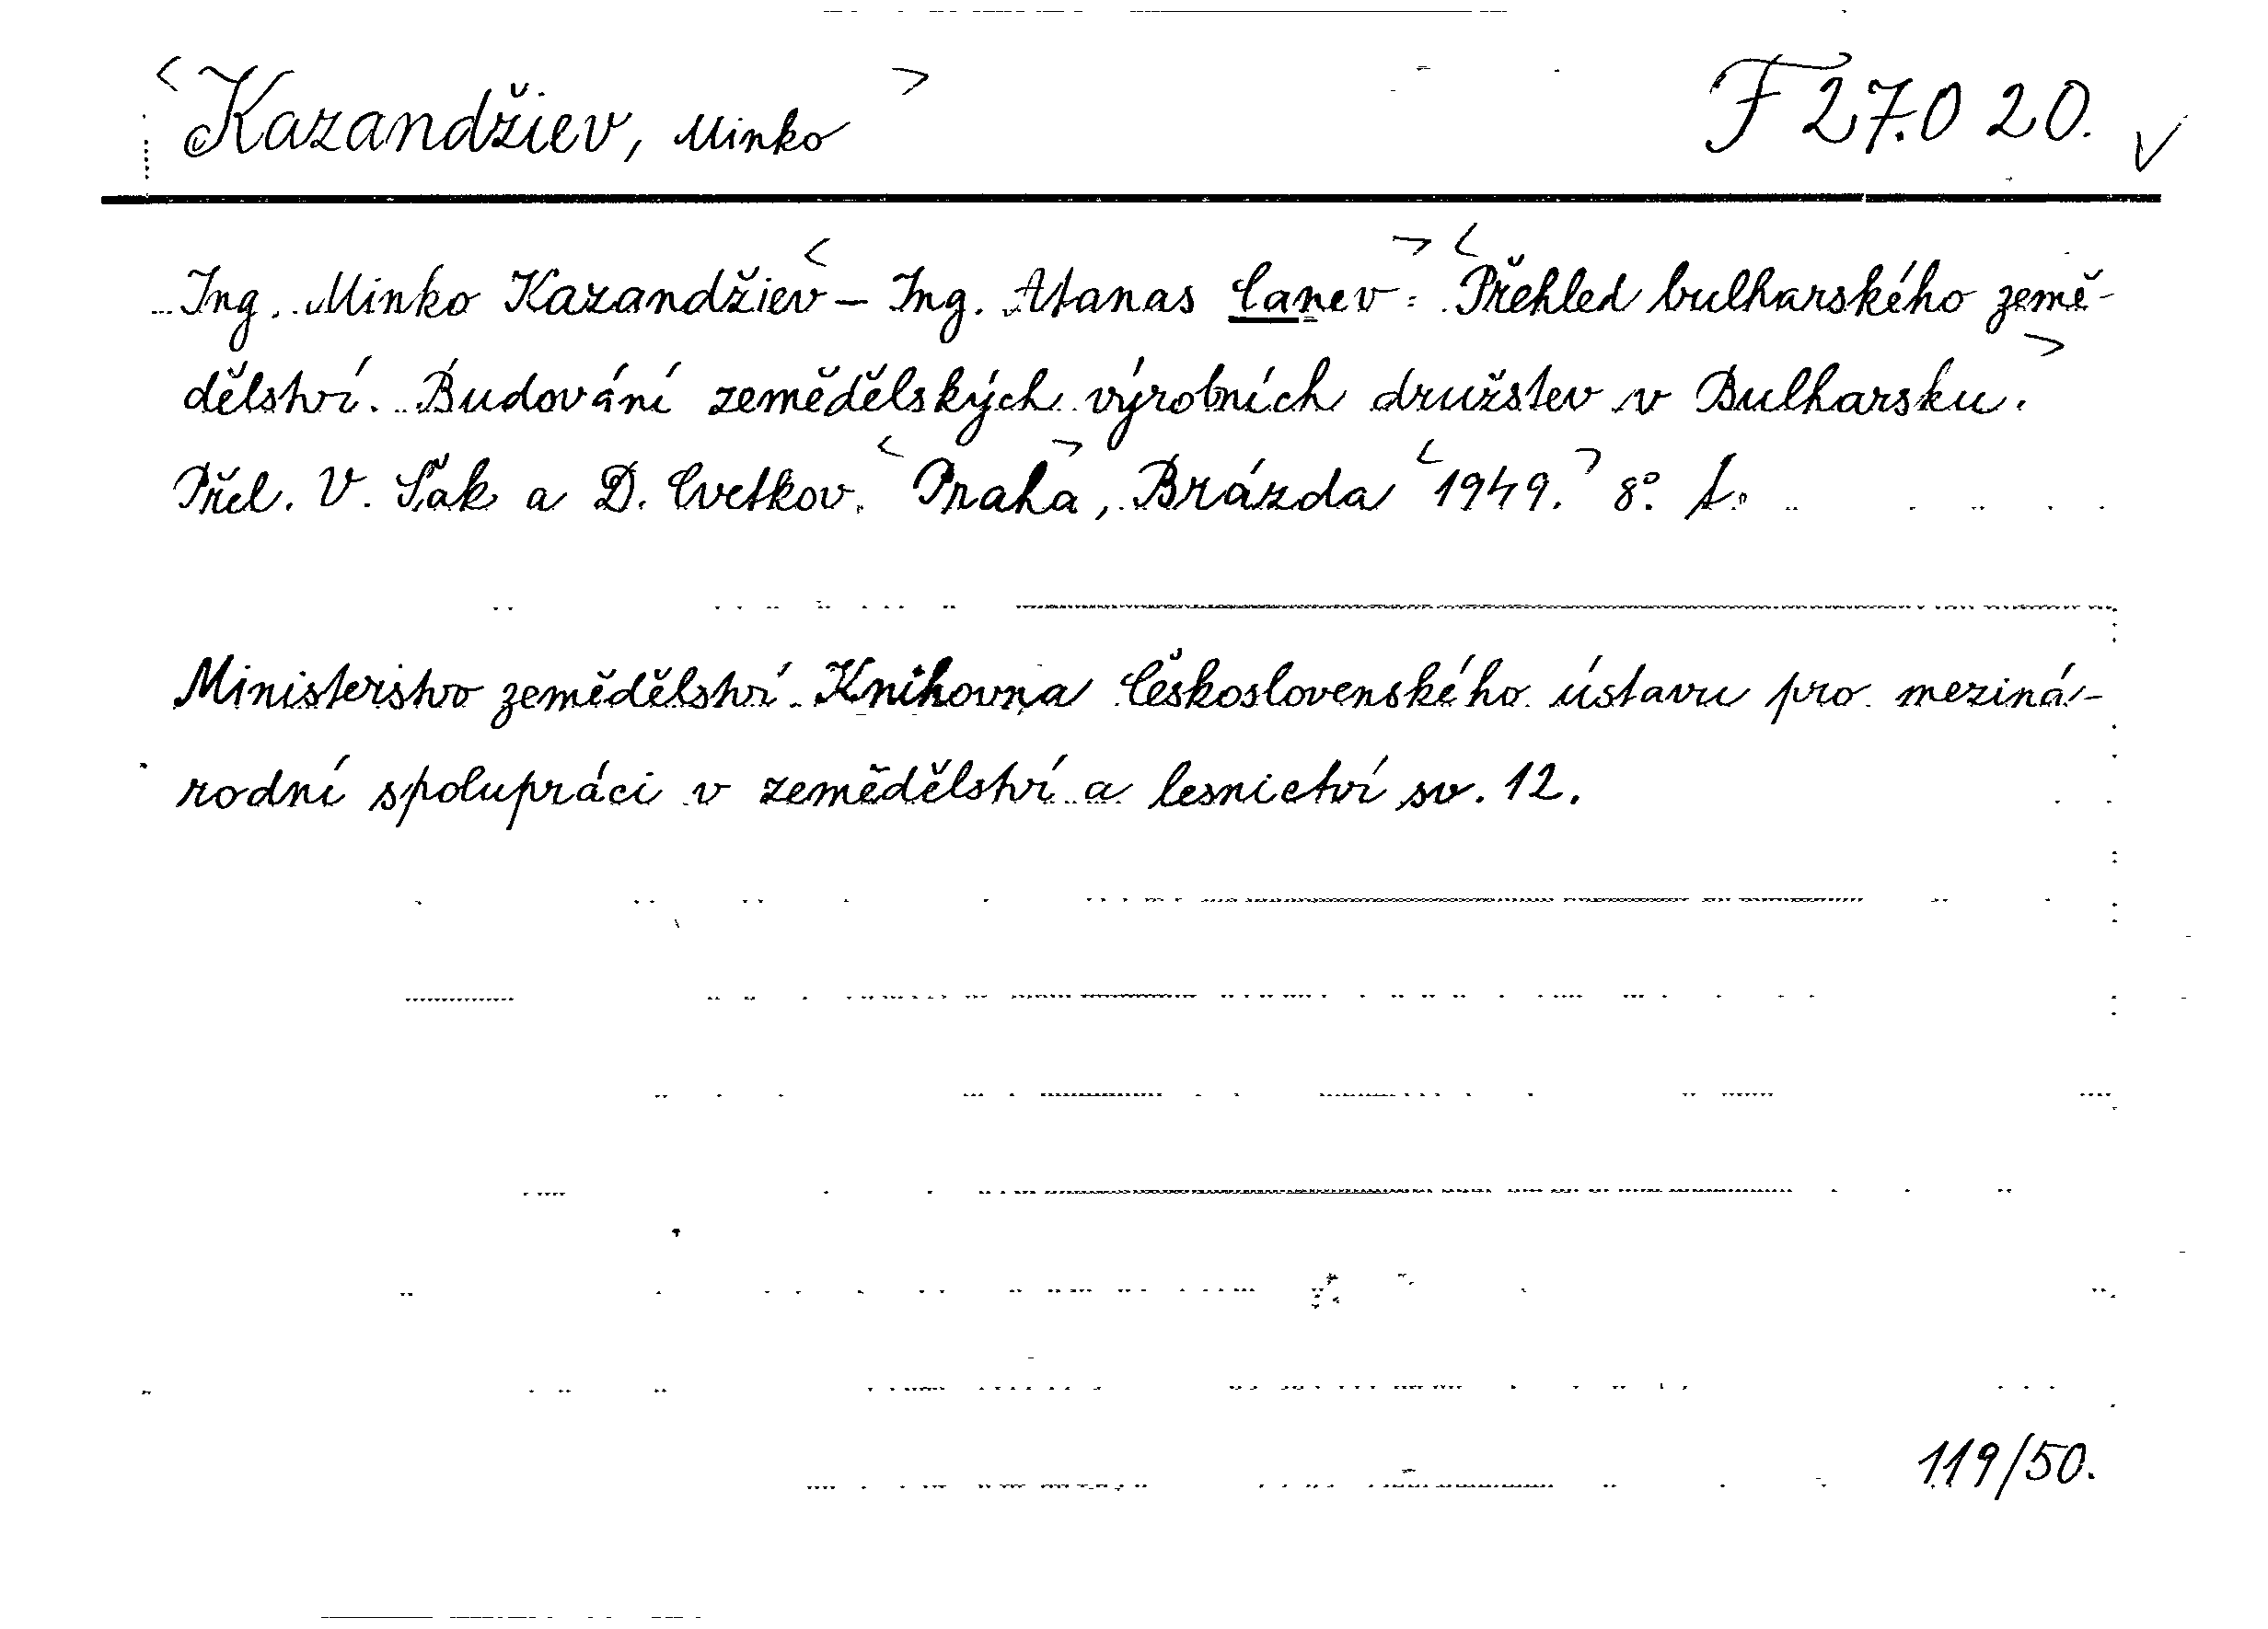 <Kazandžiev, Minko> F 27.020. ✓
Ing. Minko Kazandžiev< – Ing. Atanas Canev>: <Přehled bulharského země-
dělství. Budování zemědělských výrobních družstev v Bulharsku.>
Přel. V. Šak a D. Cvetkov. <Praha>, Brázda <1949.> 8°.
Ministerstvo zemědělství. Knihovna Československého ústavu pro meziná-
rodní spolupráci v zemědělství a lesnictví sv. 12.
119/50.